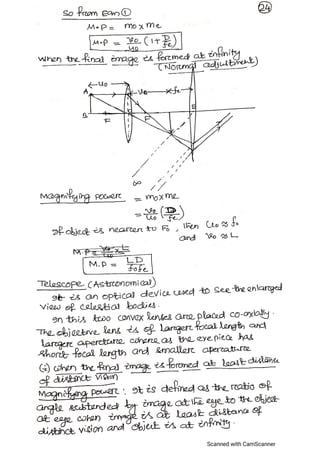 So from Eqn ①
24
M.P = mo x me
M.P = vo/uo (1 + D/fe)
When the final image is formed at infinity
(Normal adjustment)
uo
vo
fe
A
B
F
F
E
∞
Magnifying power = mo x me
= vo/uo (D/fe)
If object is nearer to Fo, then uo ≈ fo
and vo ≈ L
M.P = L D/fo fe
Telescope (Astronomical)
It is an optical device used to see the enlarged
view of celestial bodies.
In this two convex lenses are placed co-axially.
The objective lens is of larger focal length and
larger aperture where as the eyepiece has
short focal length and smaller aperature
(i) When the final image is formed at least distance
of distinct vision
Magnifying power : It is defined as the ratio of
angle subtended by image at the eye to the object
at eye when image is at least distance of
distinct vision and object is at infinity.
Scanned with CamScanner